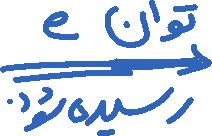 توان e
رسیده شود.